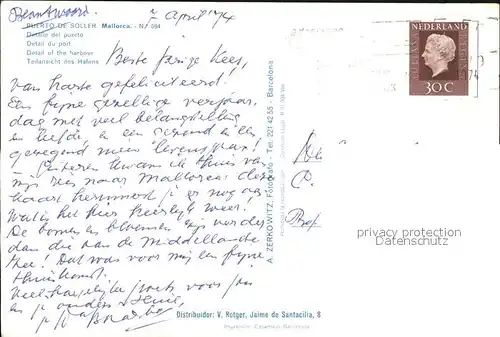 Beantwoord.
7 April '74
PUERTO DE SOLLER Mallorca. - N.º 064
Detalle del puerto
Detail du port
Detail of the harbour
Teilansicht des Hafens
NEDERLAND
30 C
1974
Beste jarige Kees,
van harte gefeliciteerd!
Een fijne gezellige verjaar-
dag met veel belangstelling
en liefde en een gezond en een
gezegend nieuw levensjaar!
Gisteren kwam ik thuis van
mijn reis naar Mallorca: deze
kaart herinnert je er nog aan
Wat is het hier heerlijk weer!
De bomen en bloemen zijn verder
dan die van de Middellandse
Zee! Dat was voor mij een fijne
thuiskomst.
Veel hartelijke groets voor jou
en je ouders thuis,
A. ZERKOWITZ, Fotógrafo - Tel. 221 42 55 - Barcelona
privacy protection
Datenschutz
Distribuidor: V. Rotger, Jaime de Santacilia, 8